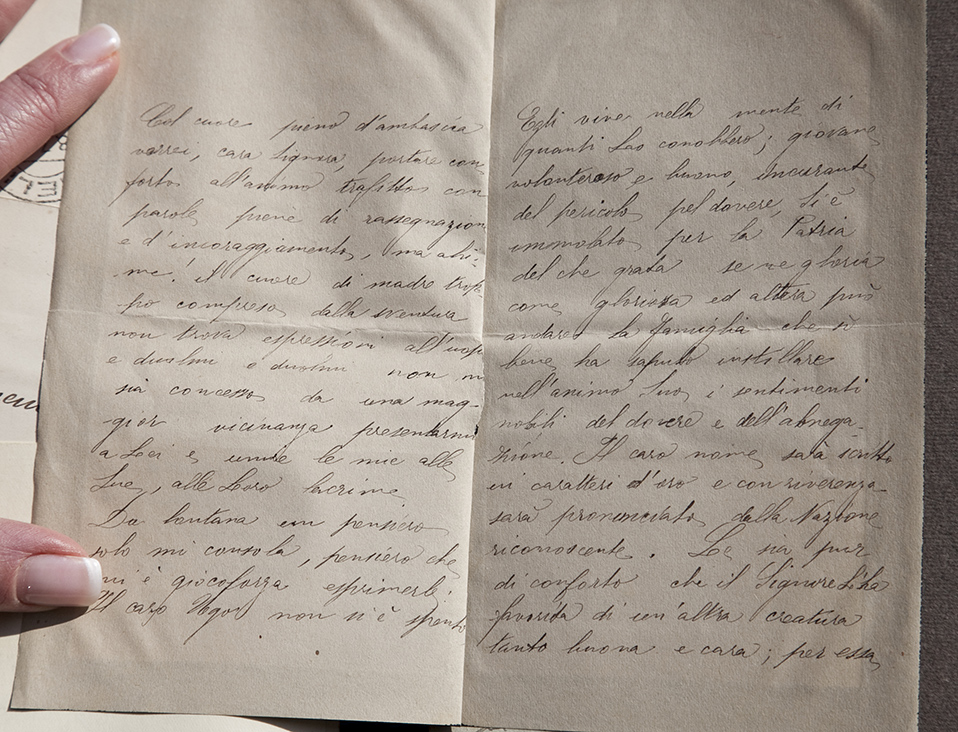 Col cuore pieno d'ambascia
vorrei, cara Signora, portare con
forto all'animo trafitto con
parole piene di rassegnazion
e d'incoraggiamento, ma ahi-
me! il cuore di madre trop
po compreso dalla sventura
non trova espressioni all'uop
e duolmi e duolmi non m
sia concesso da una mag-
gior vicinanza presentarmi
a Lei e unire le mie alle
Sue, alle Loro lacrime
Da lontana un pensiero
solo mi consola, pensiero che
mi è giocoforza esprimerle:
Il caro Ugo non si è spento
Egli vive nella mente di
quanti Lo conobbero; giovane
volonteroso e buono, incurante
del pericolo pel dovere, Si è
immolato per la Patria
del che grata se ne gloria
come gloriosa ed altera può
andare la famiglia che sì
bene ha saputo instillare
nell'animo Suo i sentimenti
nobili del dovere e dell'abnega-
zione. Il caro nome sarà scritto
in caratteri d'oro e con riverenza
sarà pronunciato dalla Nazione
riconoscente. Le sia pur
di conforto che il Signore L'ha
favorita di un'altra creatura
tanto buona e cara; per essa